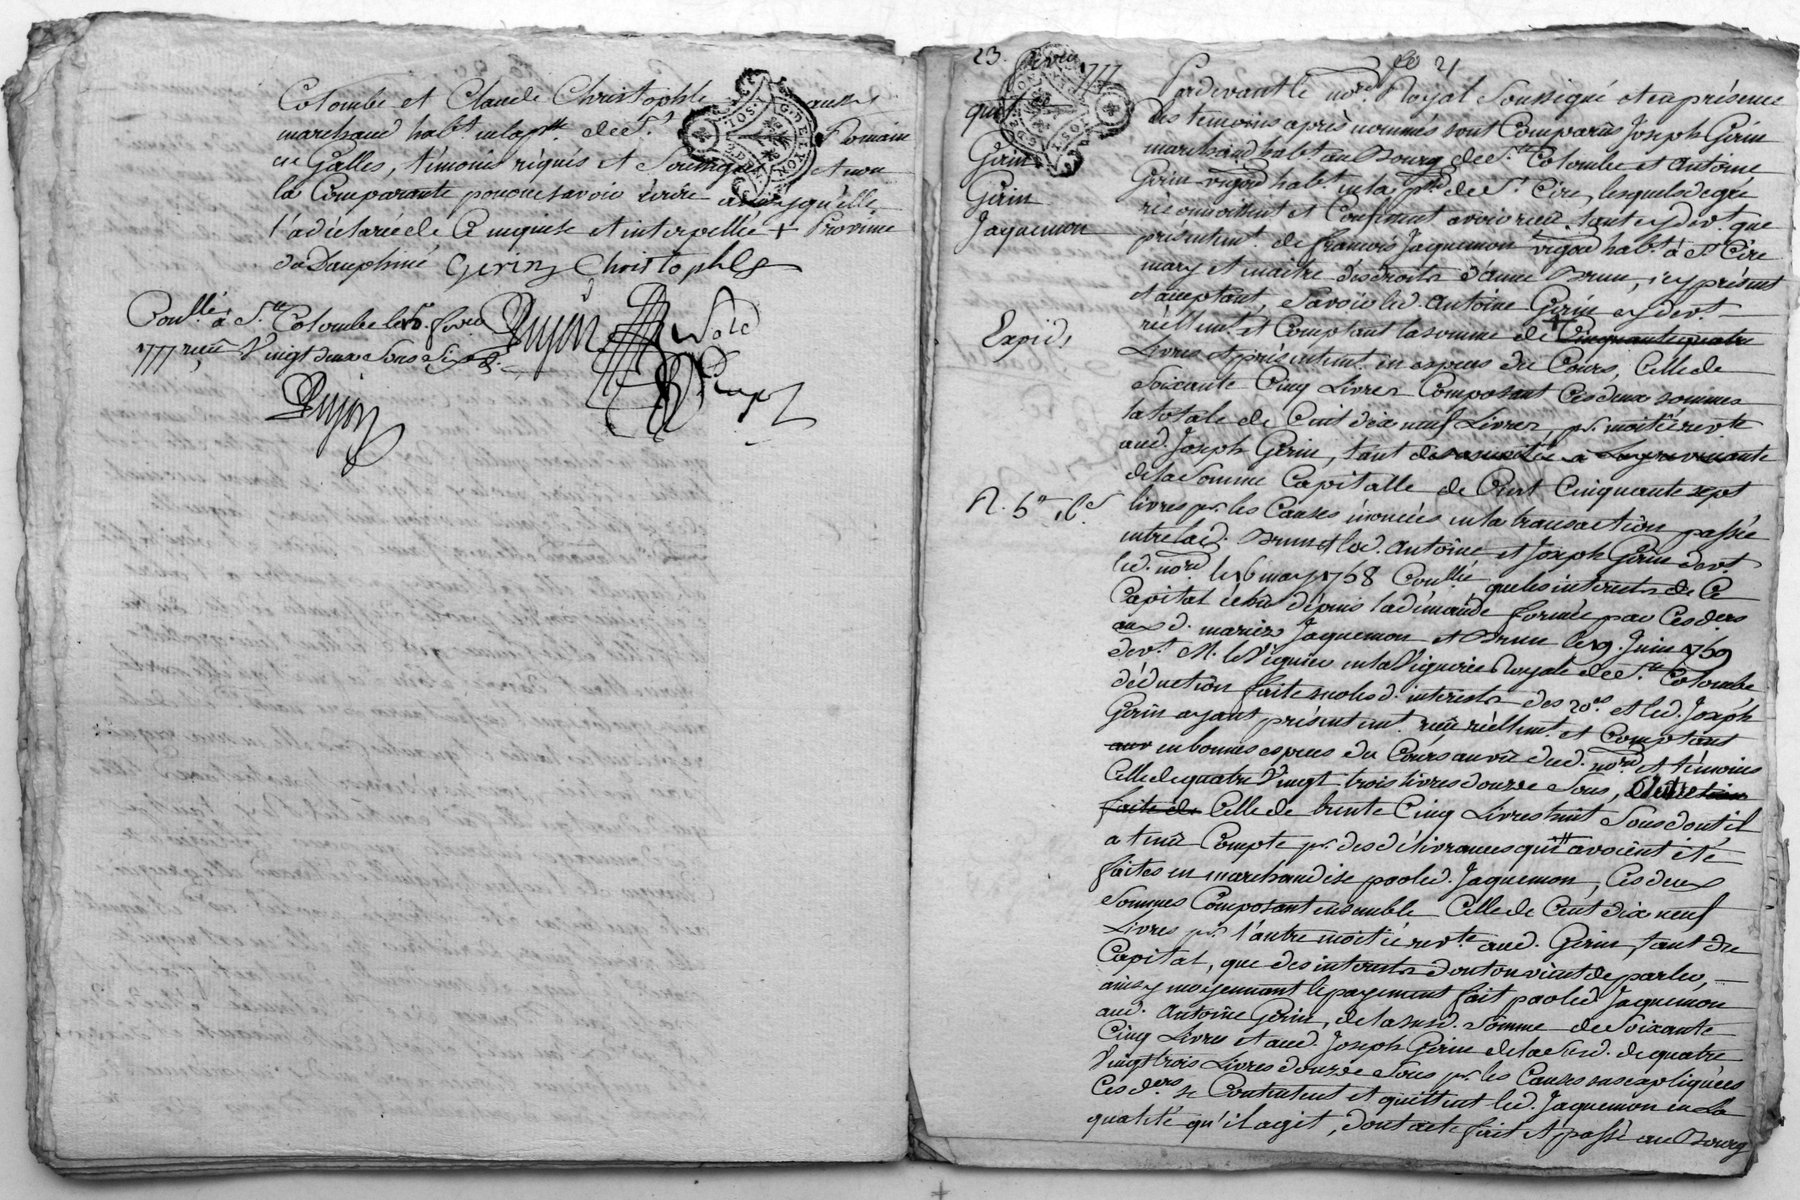 Colombe et Claude Christophle aussy
marchand habt. en la psse de St. Romain
en Galles, témoins réquis et soussignés et non
la Comparante pour ne savoir écrire ainsy qu'elle
l'a déclaré de ce enquise et interpellée + Province
de Dauphiné Gerin Christophle
Conllé à Ste Colombe le fevrier
1777 reçu Vingt deux sous six d.
Dujon
Dujon
23. fevrier 1777
quit
Gerin
Gerin
Jaquemon
Expid,
fo 21
Pardevant le nore. Royal soussigné et en présence
des temoins après nommés sont Comparûs Joseph Gerin
marchand habt. au Bourg de Ste. Colombe et Antoine
Gerin vigon habt. en la psse de St. Cire, lesquels de gré
reconnoissent et Confessent avoir reçu tant cy devt. que
présentemt. de françois Jaquemon vigon habt. à St. Cire
mary et maitre des droits d'anne Brun, icy présent
et acceptant, savoir led. Antoine Gerin cy devt.
réellemt. et Comptant la somme de + Cinquante quatre
Livres et présentemt. en especes du Cours, Celle de
Soixante Cinq Livres Composant Ces deux sommes
la totale de Cent dix neuf Livres, pr. moitié revte
aud. Joseph Gerin, tant
de la Somme Capitalle de Cent Cinquante sept
livres pr. les Causes énoncées en la transaction passée
entre lad. Brun et led. Antoine et Joseph Gerin devt.
led. nore. le 16 may 1768 Conllée, que les interests de Ce
Capital échû depuis la démande formée par Ces ders
aux d. mariés Jaquemon et Brun le 19. Juin 1769
devt. M. le Viguier en la Viguerie Royale de Ste. Colombe
déduction faite sur lesd. interests des 20es. et led. Joseph
Gerin ayant présentemt. reçu réellemt. et Comptant
en bonnes especes du Cours au vû dud. nore. et témoins
Celle de quatre Vingt trois livres douze Sous, et
faite de Celle de trente Cinq Livres huit Sous dont il
a tenu Compte pr. des délivrances qui avoient été
faites en marchandise par led. Jaquemon, Ces deux
Sommes Composant ensemble Celle de Cent dix neuf
Livres pr. l'autre moitié revte. aud. Gerin, tant du
Capital, que des interests dont on vient de parler,
ainsy moyennant le payement fait par led. Jaquemon
aud. Antoine Gerin, de la susd. Somme de Soixante
Cinq Livres et aud. Joseph Gerin de la susd. de quatre
Vingt trois Livres douze Sous pr. les Causes susexpliquées
Ces ders. se Contentent et quittent led. Jaquemon en La
qualité qu'il agit, dont acte fait et passé au Bourg